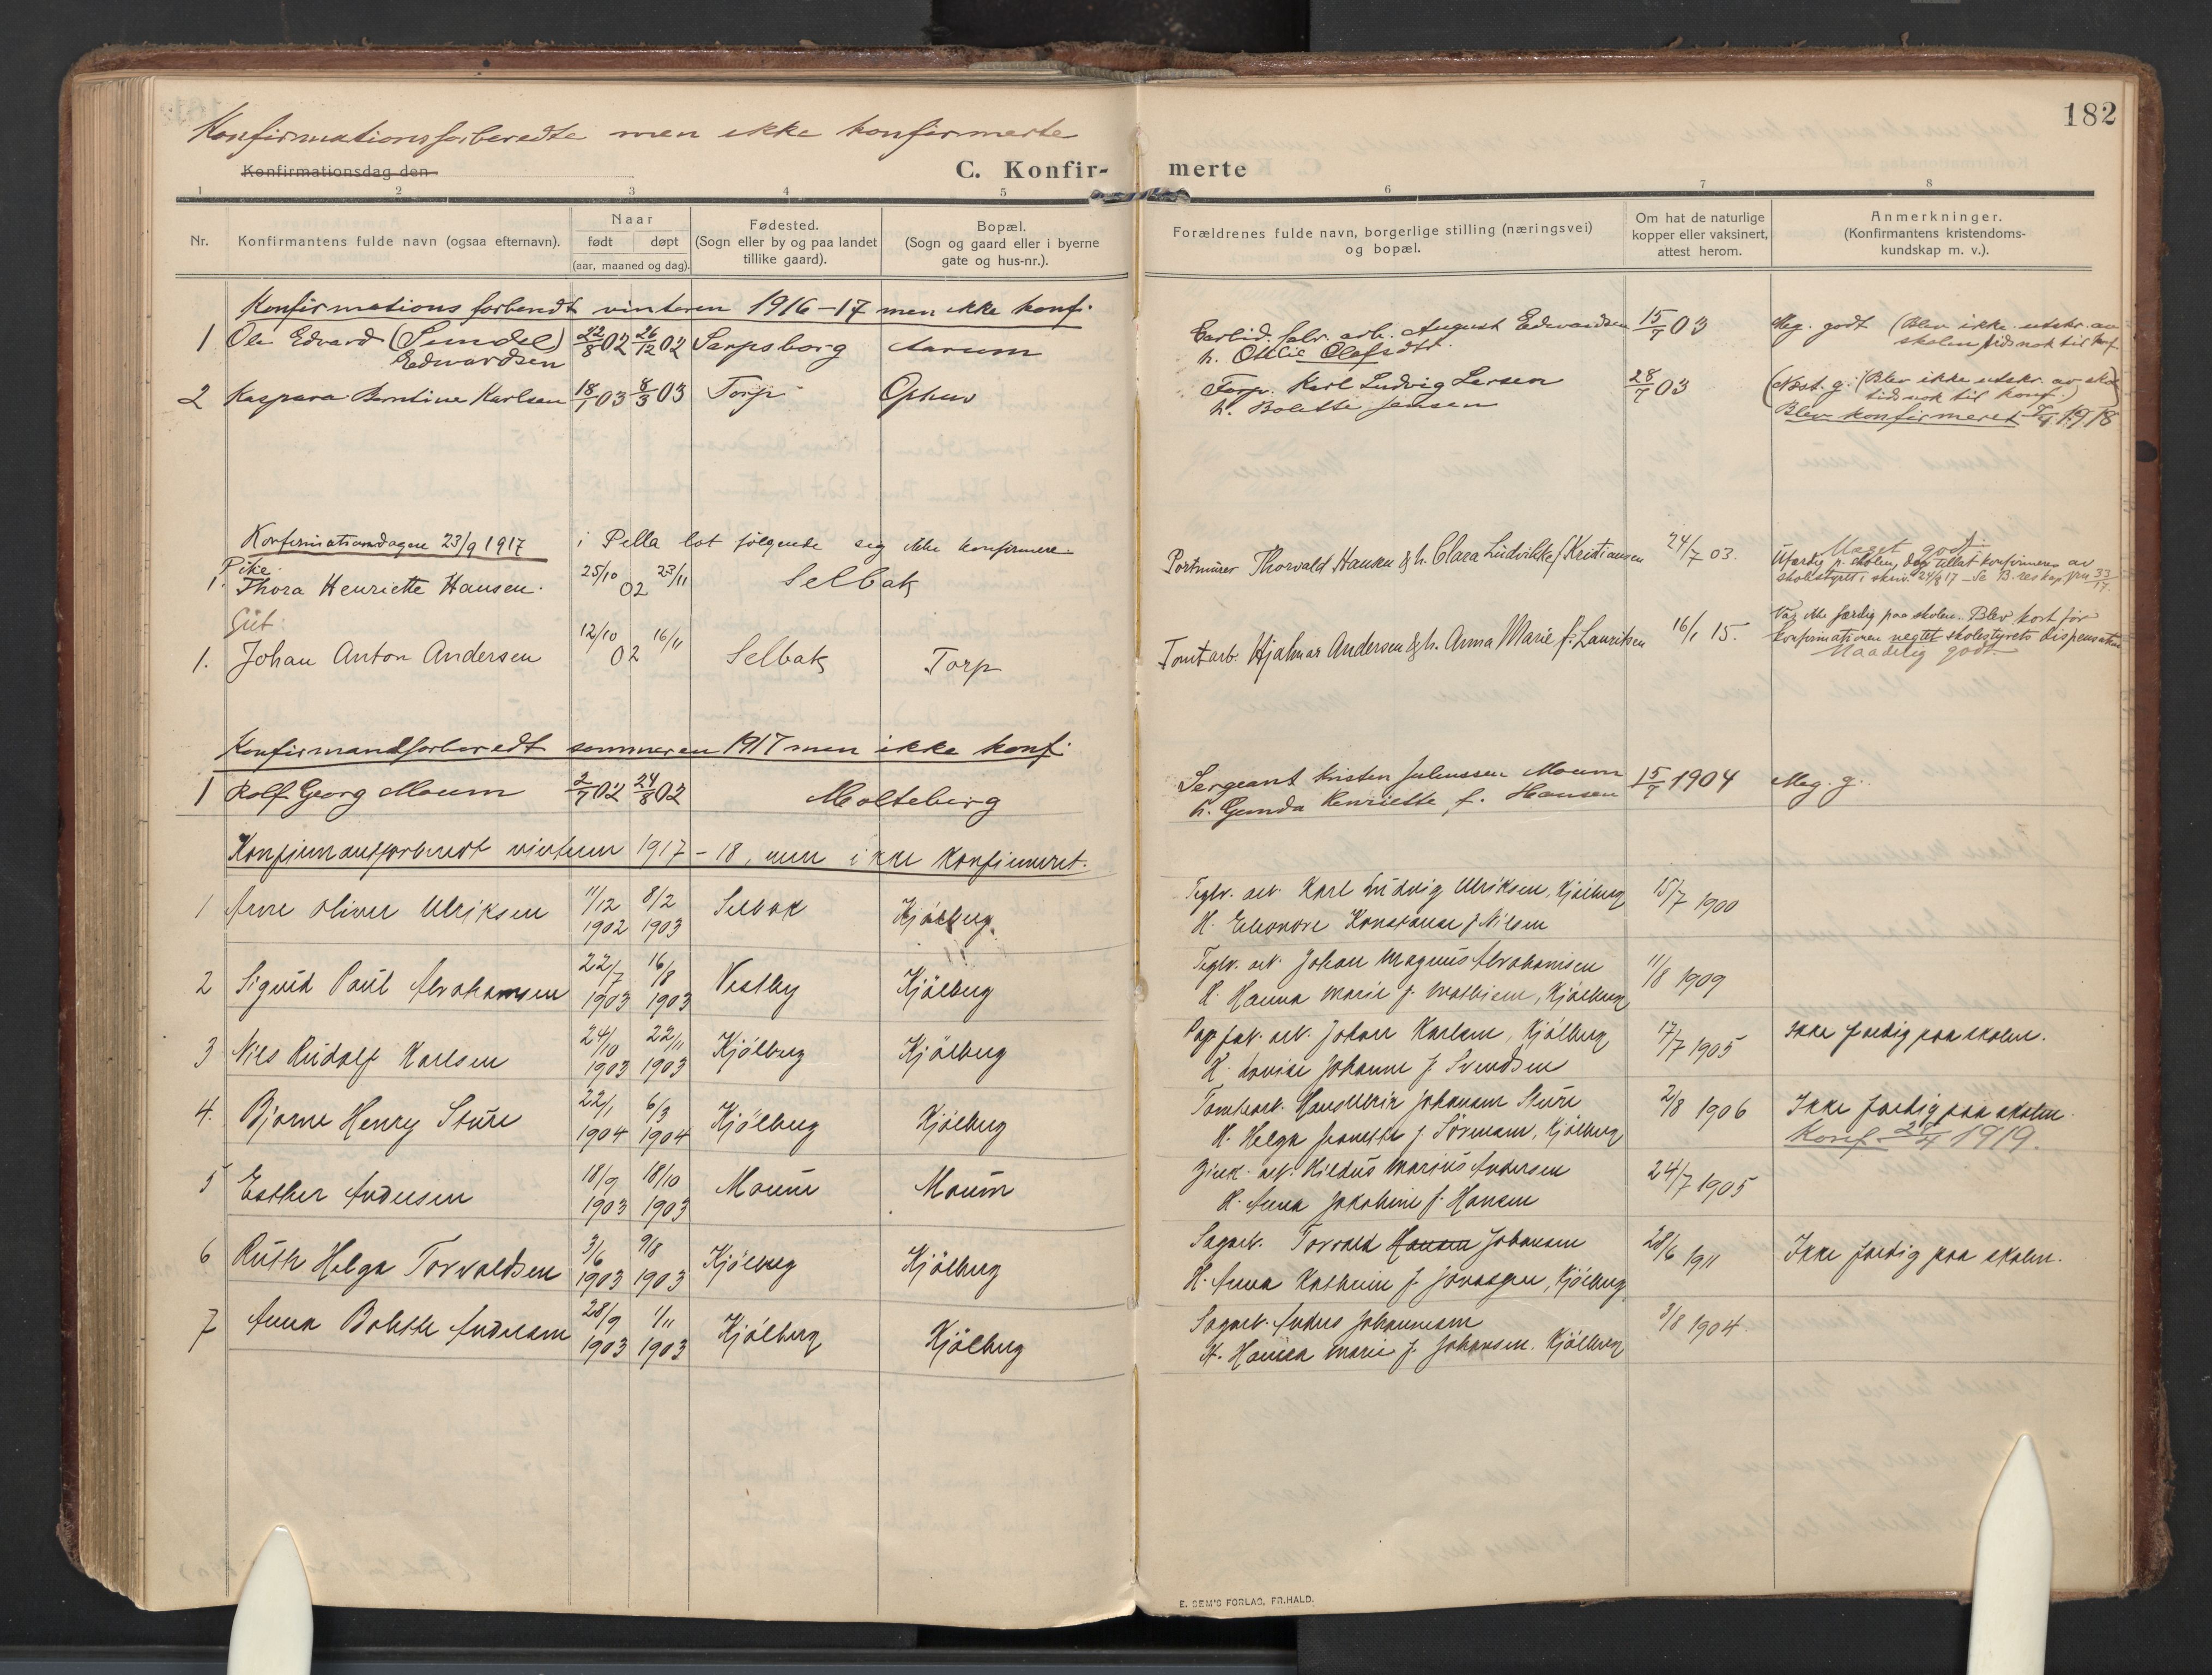 182
Konfirmationsforberedte men ikke konfirmerte
Konfirmationsdag den
C. Konfir- merte
1 2 3 4 5 6 7 8
Nr. Konfirmantens fulde navn (ogsaa efternavn). Naar født døpt (aar, maaned og dag). Fødested. (Sogn eller by og paa landet tillike gaard). Bopæl. (Sogn og gaard eller i byerne gate og hus-nr.). Forældrenes fulde navn, borgerlige stilling (næringsvei) og bopæl. Om hat de naturlige kopper eller vaksinert, attest herom. Anmerkninger. (Konfirmantens kristendoms- kundskap m. v.).
Konfirmations forberedt vinteren 1916-17 men ikke konf.
1 Ole Edvard (Sundel) Edwardsen 22/8 02 26/12 02 Sarpsborg Aarum August Edwardsen h. Ottlie Olafsdtr. 15/7 03 Meg. godt (Blev ikke utskr. av skolen tids nok til konf.
2 Kaspara Berntine Karlsen 18/1 03 8/3 03 Torp Ophus Karl Ludvig Larsen h. Bolette Jensen 28/7 03 (Næst. g. (Blev ikke utskr. av skol tids nok til konf.) Blev konfirmeret 1918
Konfirmationsdagen 23/9 1917 i Pella lot følgende seg ikke konfirmere
Pike
1. Thora Henriette Hansen. 25/10 02 23/11 Selbak Portmurer Thorvald Hansen & h. Clara Ludvikke f Kristiansen 24/7 03. Meget godt Ufærdig p. skolen, dog tillat konfirmeres av skolestyret i skriv. 24/8 17 - Se B.
Gut
1. Johan Anton Andersen 12/10 02 16/11 Selbak Torp Tomtarb. Hjalmar Andersen & h. Anna Marie f. Lauritsen 16/1 15. Var ikke færdig paa skolen. Blev kort før konfirmationen negtet skolestyrets dispensation Maadelig godt
Konfirmandforberedt sommeren 1917 men ikke konf.
1 Rolf Georg Moum 2/7 02 24/8 02 Molteberg Sergeant Kristen Juliussen Moum h. Gunda Henriette f. Hansen 15/7 1904 Meg. g.
Konfirmantforberedt vinteren 1917-18, men ikke konfirmeret.
1 Arne Oliver Ulriksen 11/12 1902 8/2 1903 Selbak Kjölberg Teglv. arb. Karl Ludvig Ulriksen, Kjölberg H. Eleonore Konstanse f Nilsen 15/7 1900
2 Sigurd Paul Abrahamsen 22/7 1903 16/8 1903 Vestby Kjölberg Teglv. arb. Johan Magnus Abrahamsen H. Hanna Marie f. Mathisen, Kjölberg 11/8 1909
3 Nils Rudolf Karlsen 24/10 1903 22/11 1903 Kjölberg Kjölberg Pap. fab. arb. Johan Karlsen, Kjölberg H. Lovise Johanne f. Svendsen 17/7 1905 Ikke færdig paa skolen.
4. Bjarne Henry Sture 22/1 1904 6/3 1904 Kjölberg Kjölberg Tomtearb. Hans Ulrik Johansen Sture H. Helga Jeanette f. Sörensen, Kjölberg 2/8 1906 Ikke færdig paa skolen. Konf. 1919.
5 Esther Andersen 18/9 1903 18/10 1903 Moum Moum arb. Hildus Marius Andersen H. Anna Jakobine f. Hansen 24/7 1905
6 Ruth Helga Torvaldsen 3/6 1903 9/8 1903 Kjölberg Kjölberg Sagarb. Torvald Hansen Johansen H. Anna Kathrine f. Jonassen, Kjölberg 28/6 1911 Ikke færdig paa skolen.
7 Anna Bolette Andersen 28/9 1903 1/11 1903 Kjölberg Kjölberg Sagarb. Anders Johannesen H. Hanna Marie f. Johansen. Kjölberg 3/8 1904
E. SEM'S FORLAG, FR.HALD.